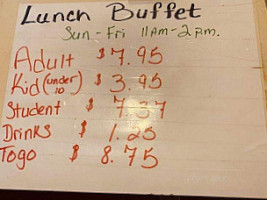 Lunch Buffet
Sun - Fri 11AM-2pm.
Adult $7.95
Kid (under 10) $ 3.95
Student $ 7.37
Drinks $ 1.25
Togo $ 8.75